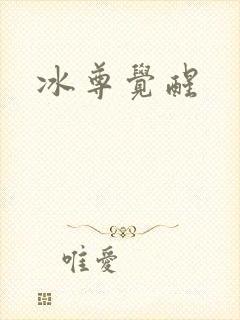 冰尊覺醒
唯愛